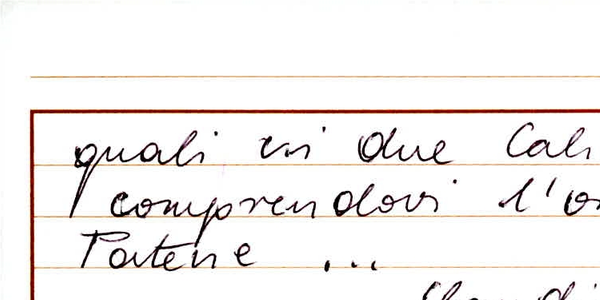 quali ivi due Cali
comprendovi l'or
Patene ...